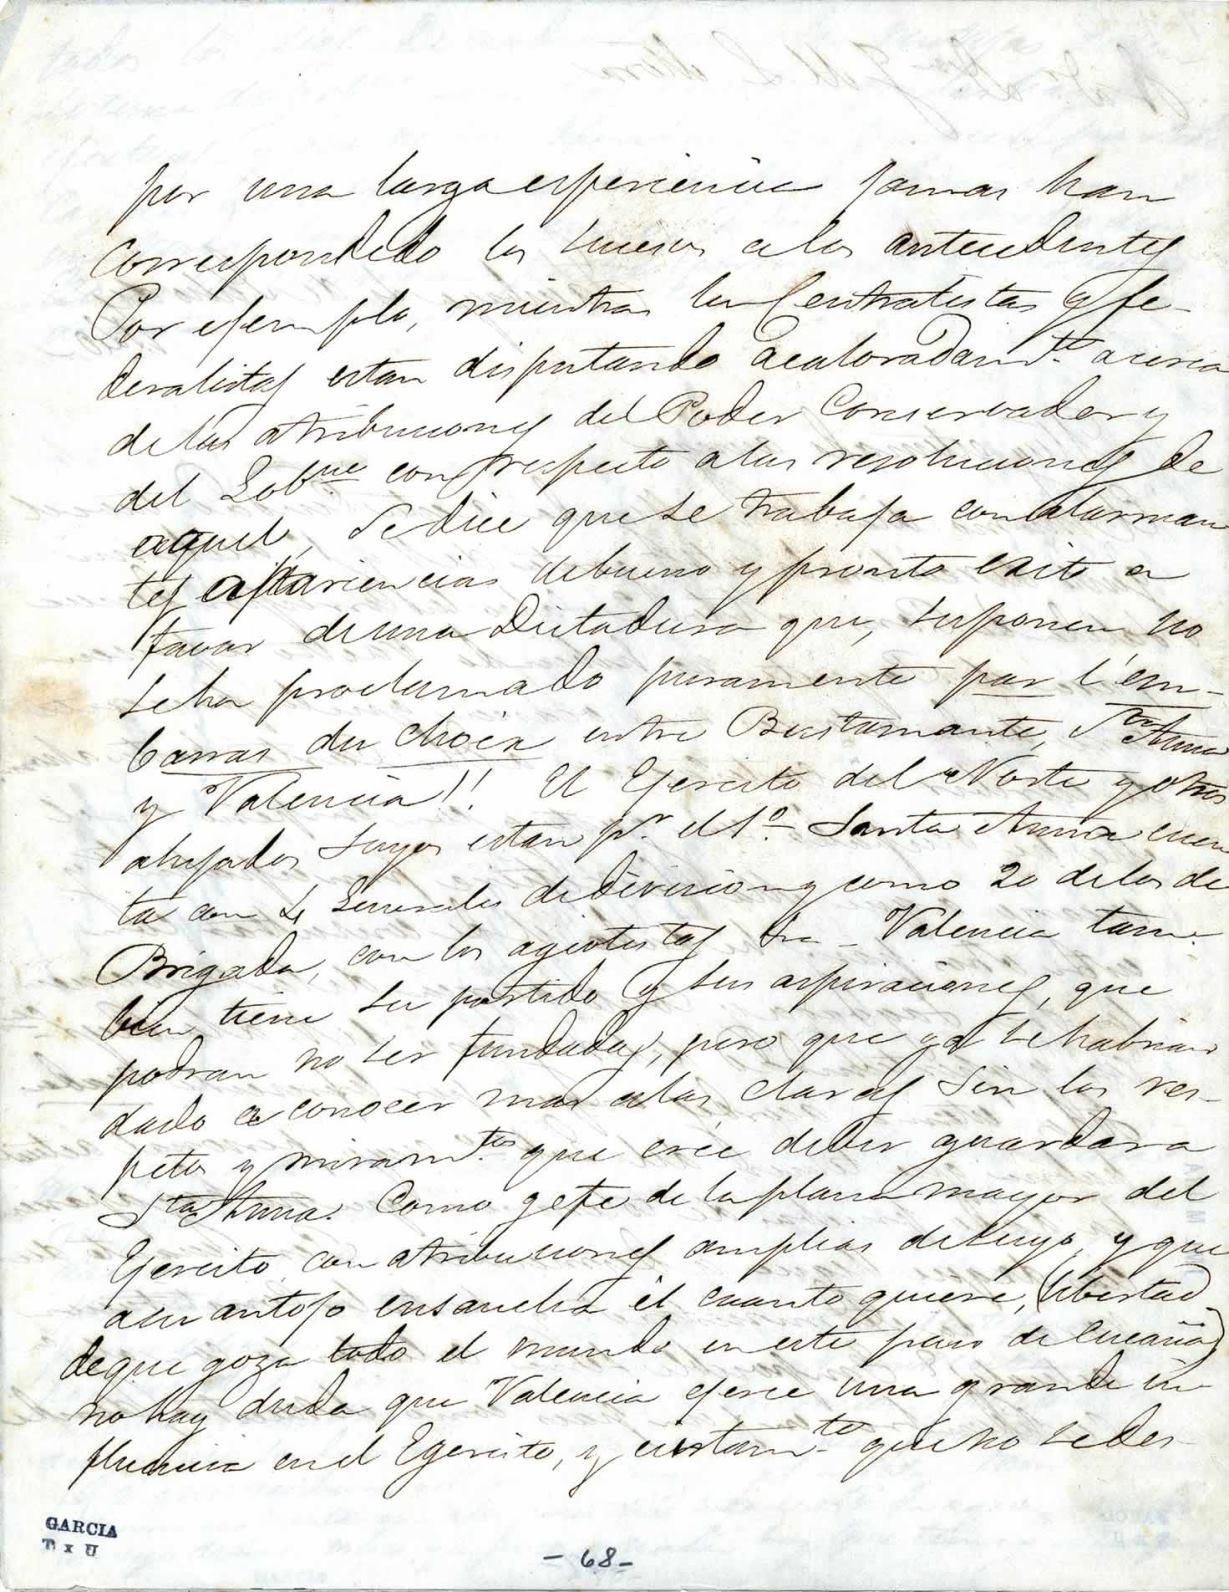 por una larga esperiencia jamas han
correspondido los sucesos a los antecedentes
Por ejemplo, mientras los Centralistas y fe-
deralistas estan disputando acaloradam.te acerca
de las atribuciones del Poder Conservador y
del Gob.no con respecto a las resoluciones de
aquel, se dice que se trabaja con alarman
tes apariencias de bueno y pronto exito a
favor de una Dictadura que, suponen no
se ha proclamado puramente par l'em-
barras du choix entre Bustamante, Sta Anna
y Valencia!! El Ejercito del Norte y otros
ahijados suyos estan p.r el 1.o - Santa Anna cuen
ta con 4 Generales de division y como 20 de los de
Brigada, con los agiotistas - Valencia tam-
bien tiene su partido y sus aspiraciones, que
podran no ser fundadas, pero que ya se habrian
dado a conocer mas a las claras sin los res-
petos y miram.tos que cree deber guardar a
Sta Anna. Como gefe de la plana mayor del
Ejercito con atribuciones amplias de suyo, y que
a su antojo ensancha él cuanto quiere, (libertad
de que goza todo el mundo en este pais de cucaña)
no hay duda que Valencia ejerce una grande in
fluencia en el Egercito, y ciertam.te que no se des-
GARCIA
T x U
- 68 -